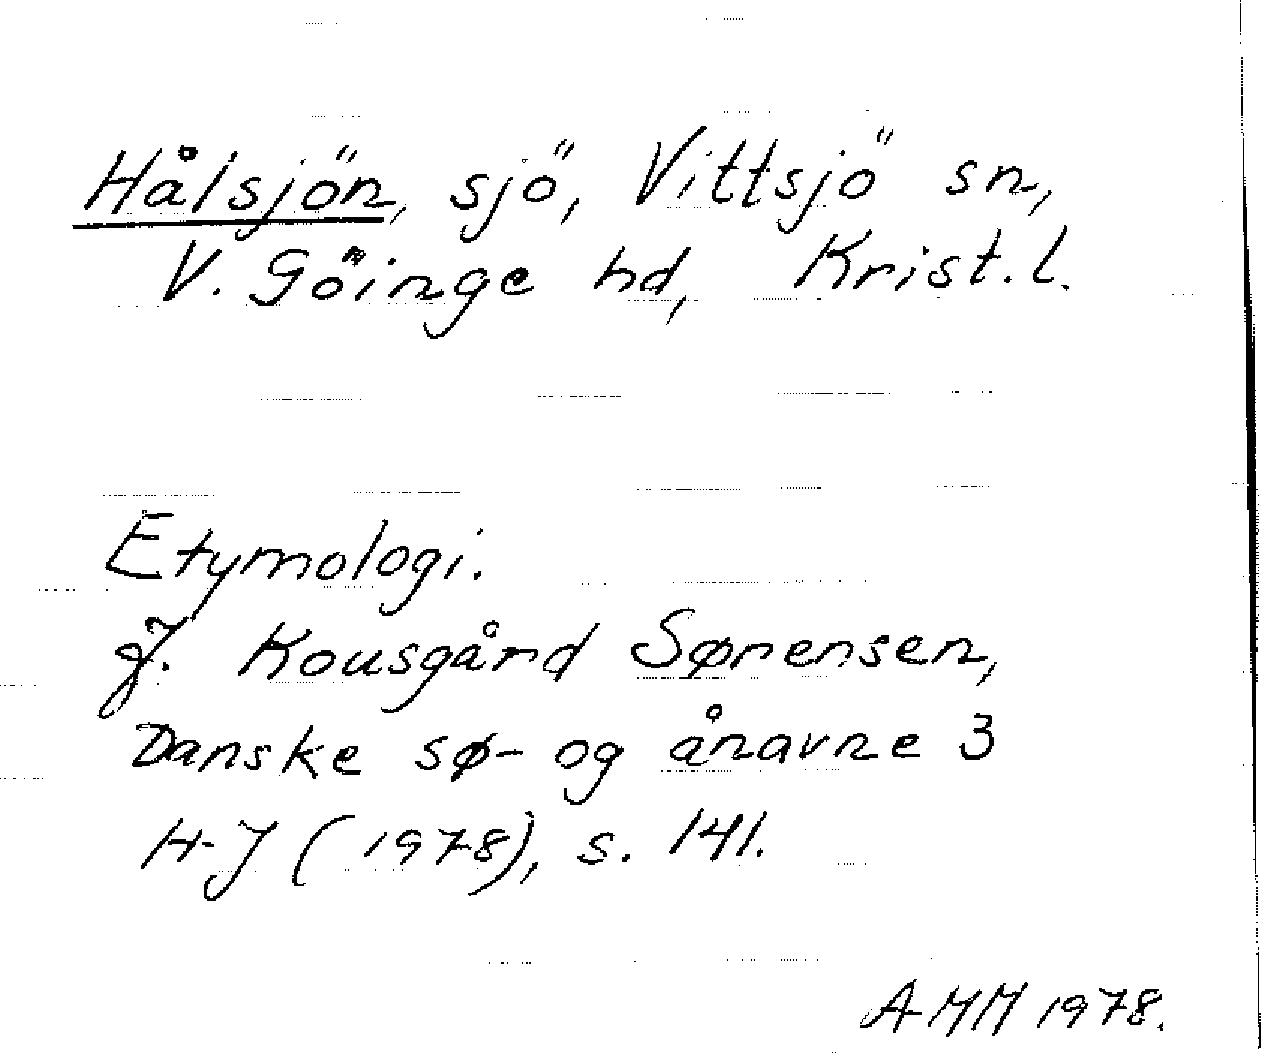 Hålsjön, sjö, Vittsjö sn,
V. Göinge hd, Krist. l.
Etymologi.
J. Kousgård Sørensen,
Danske sø- og ånavne 3
H-J (1978), s. 141.
AMM 1978.